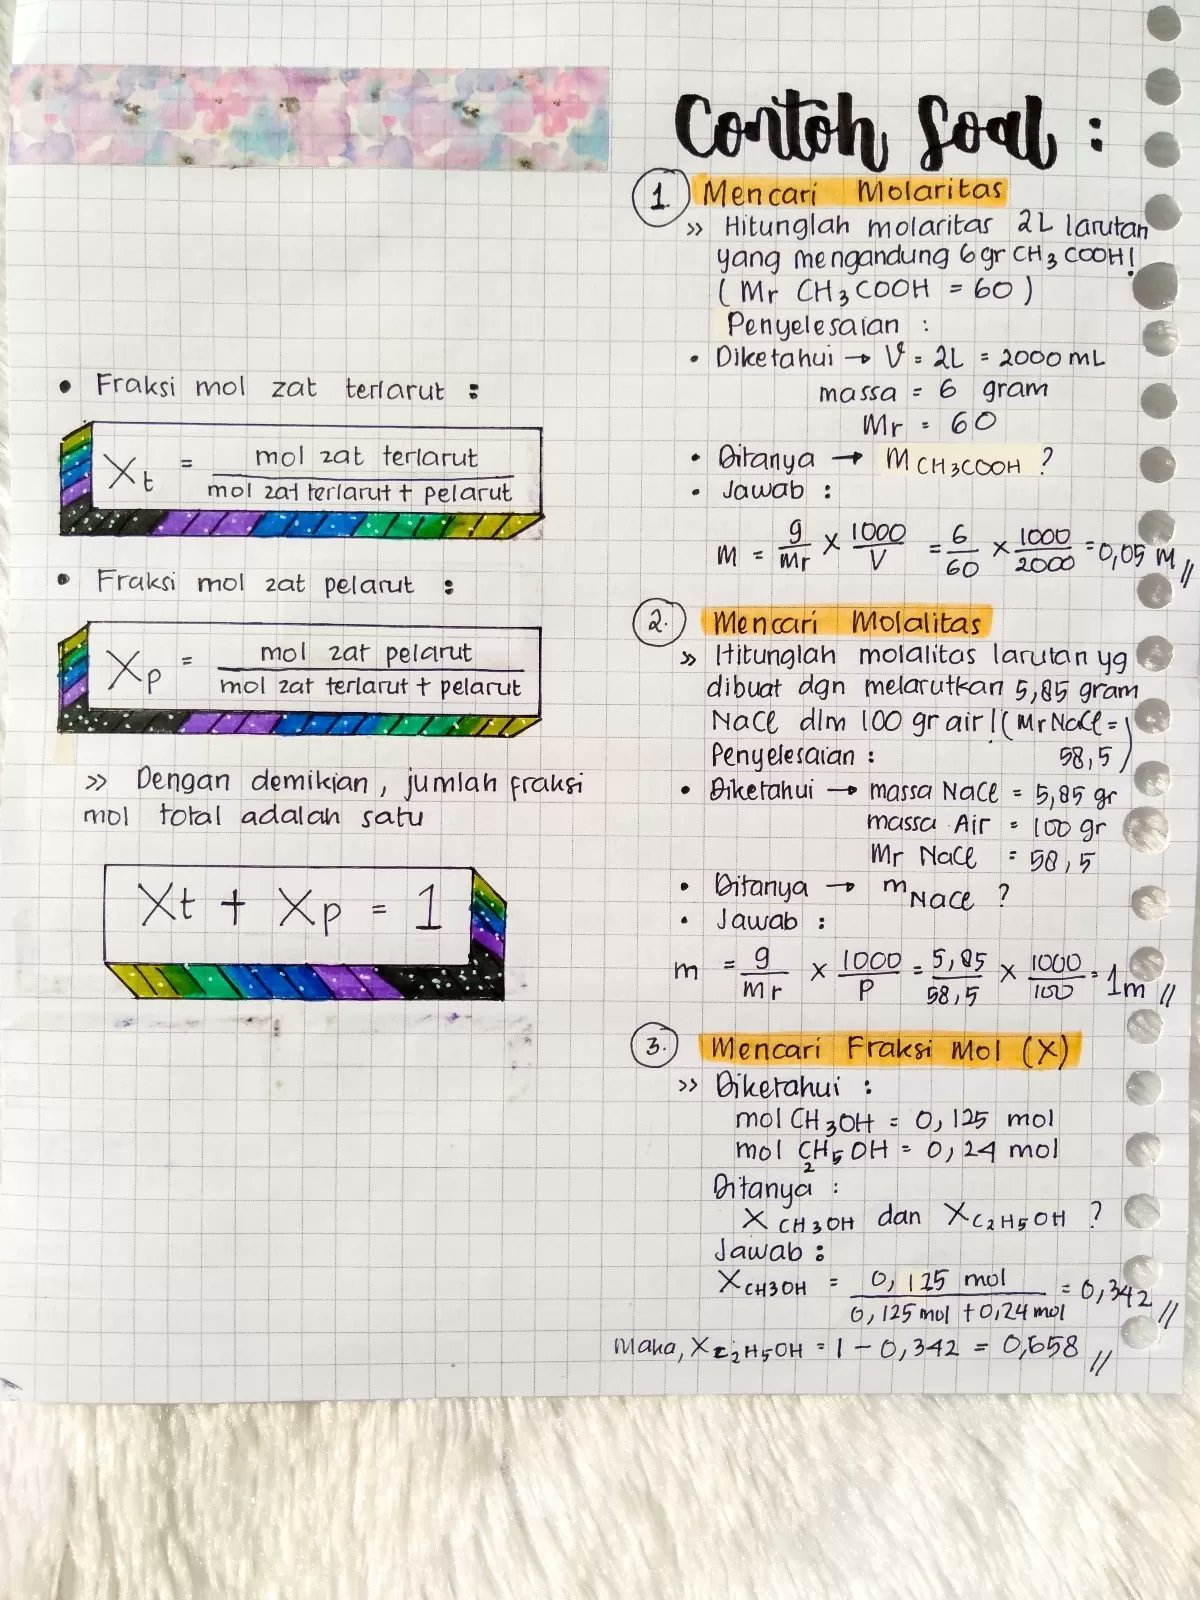 • Fraksi mol zat terlarut :
Xt = mol zat terlarut / mol zat terlarut + pelarut
• Fraksi mol zat pelarut :
Xp = mol zat pelarut / mol zat terlarut + pelarut
>> Dengan demikian, jumlah fraksi
mol total adalah satu
Xt + Xp = 1
Contoh Soal :
1. Mencari Molaritas
>> Hitunglah molaritas 2L larutan
yang mengandung 6 gr CH3COOH!
(Mr CH3COOH = 60)
Penyelesaian :
• Diketahui → V = 2L = 2000 mL
massa = 6 gram
Mr = 60
• Ditanya → M CH3COOH ?
• Jawab :
M = g/Mr × 1000/V = 6/60 × 1000/2000 = 0,05 M //
2. Mencari Molalitas
>> Hitunglah molalitas larutan yg
dibuat dgn melarutkan 5,85 gram
NaCl dlm 100 gr air! (Mr NaCl =
Penyelesaian : 58,5)
• Diketahui → massa NaCl = 5,85 gr
massa Air = 100 gr
Mr NaCl = 58,5
• Ditanya → m NaCl ?
• Jawab :
m = g/Mr × 1000/P = 5,85/58,5 × 1000/100 = 1 m //
3. Mencari Fraksi Mol (X)
>> Diketahui :
mol CH3OH = 0,125 mol
mol C2H5OH = 0,24 mol
Ditanya :
X CH3OH dan X C2H5OH ?
Jawab :
X CH3OH = 0,125 mol / 0,125 mol + 0,24 mol = 0,342 //
Maka, X C2H5OH = 1 - 0,342 = 0,658 //